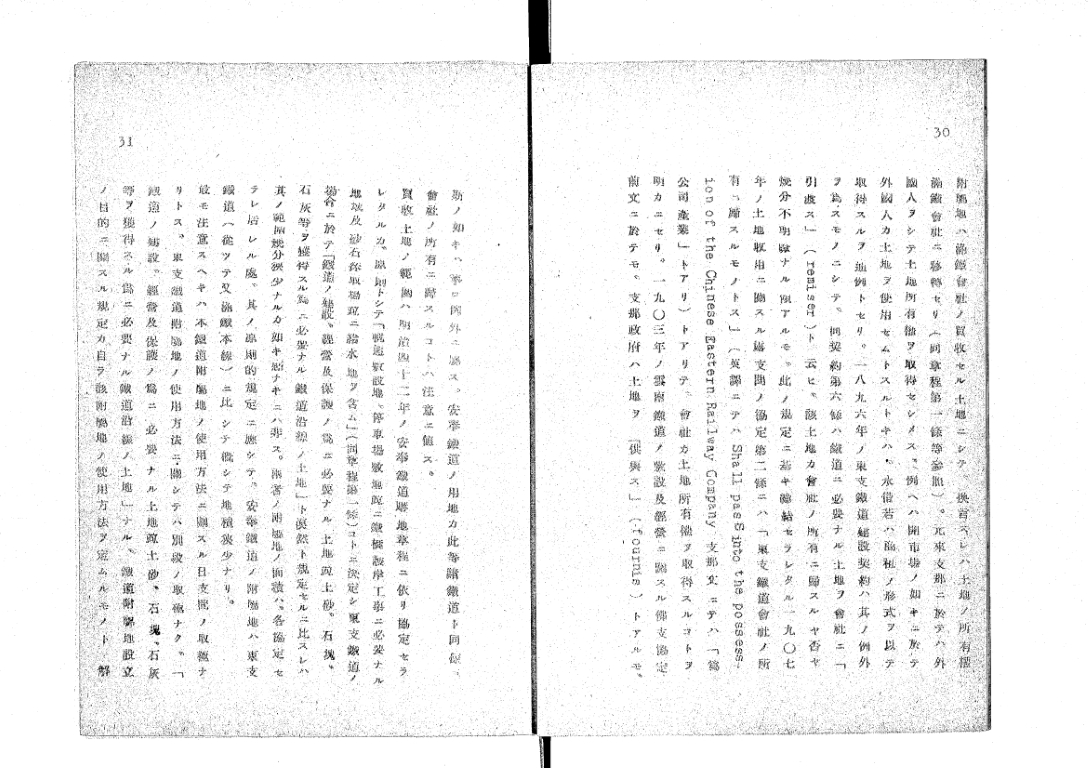 30
附屬地ハ滿鐵會社ノ買收セル土地ニシテ、換言スレハ土地ノ所有權
滿鐵會社ニ移轉セリ(同章程第一條等參照)。元來支那ニ於テハ外
國人ヲシテ土地所有權ヲ取得セシメス。例ヘハ開市場ノ如キニ於テ
外國人カ土地ヲ使用セムトスルトキハ、永借若ハ商租ノ形式ヲ以テ
取得スルヲ通例トセリ。一八九六年ノ東支鐵道建設契約ハ其ノ例外
ヲ為スモノニシテ、同契約第六條ハ鐵道ニ必要ナル土地ヲ會社ニ「
引渡ス」(remiser)ト云ヒ、該土地カ會社ノ所有ニ歸スルヤ否ヤ
幾分不明瞭ナル嫌アルモ、此ノ規定ニ基キ締結セラレタル一九〇七
年ノ土地收用ニ關スル露支間ノ協定第二條ニハ「東支鐵道會社ノ所
有ニ歸スルモノトス」(英譯ニテハ Shall pass into the possess-
ion of the Chinese Eastern Railway Company 支那文ニテハ「為
公司產業」トアリ)トアリテ、會社カ土地所有權ヲ取得スルコトヲ
明カニセリ。一九〇三年ノ雲南鐵道ノ敷設及經營ニ關スル佛支協定
前文ニ於テモ、支那政府ハ土地ヲ「供與ス」(fournis)トアルモ、
31
斯ノ如キハ寧ロ例外ニ屬ス。安奉鐵道ノ用地カ此等諸鐵道ト同樣
會社ノ所有ニ歸スルコトハ注意ニ値ス。
買收土地ノ範圍ハ明治四十二年ノ安奉鐵道購地章程ニ依リ協定セラ
レタルカ、原則トシテ「軌道敷設地、停車場敷地竝ニ鐵橋護岸工事ニ必要ナル
地域及砂石採取場竝ニ給水地ヲ含ム」(同章程第一條)コトニ決定シ東支鐵道ノ
場合ニ於テ「鐵道ノ建設、經營及保護ノ為ニ必要ナル土地竝土砂、石塊、
石灰等ヲ獲得スル為ニ必要ナル鐵道沿線ノ土地」ト漠然ト規定セルニ比スレハ
其ノ範圍幾分狹少ナルカ如キ感ナキニハ非ス。兩者ノ附屬地ノ面積ハ、各協定セ
ラレ居レル處、其ノ原則的規定ニ應シテ、安奉鐵道ノ附屬地ハ東支
鐵道(從ツテ又滿鐵本線)ニ比シテ概シテ地積狹少ナリ。
最モ注意スヘキハ本鐵道附屬地ノ使用方法ニ關スル日支間ノ取極ナ
リトス。東支鐵道附屬地ノ使用方法ニ關シテハ別段ノ取極ナク、「
鐵道ノ建設、經營及保護ノ為ニ必要ナル土地竝土砂、石塊、石灰
等ヲ獲得スル為ニ必要ナル鐵道沿線ノ土地」ナル、鐵道附屬地設立
ノ目的ニ關スル規定カ自ラ該附屬地ノ使用方法ヲ定ムルモノト解